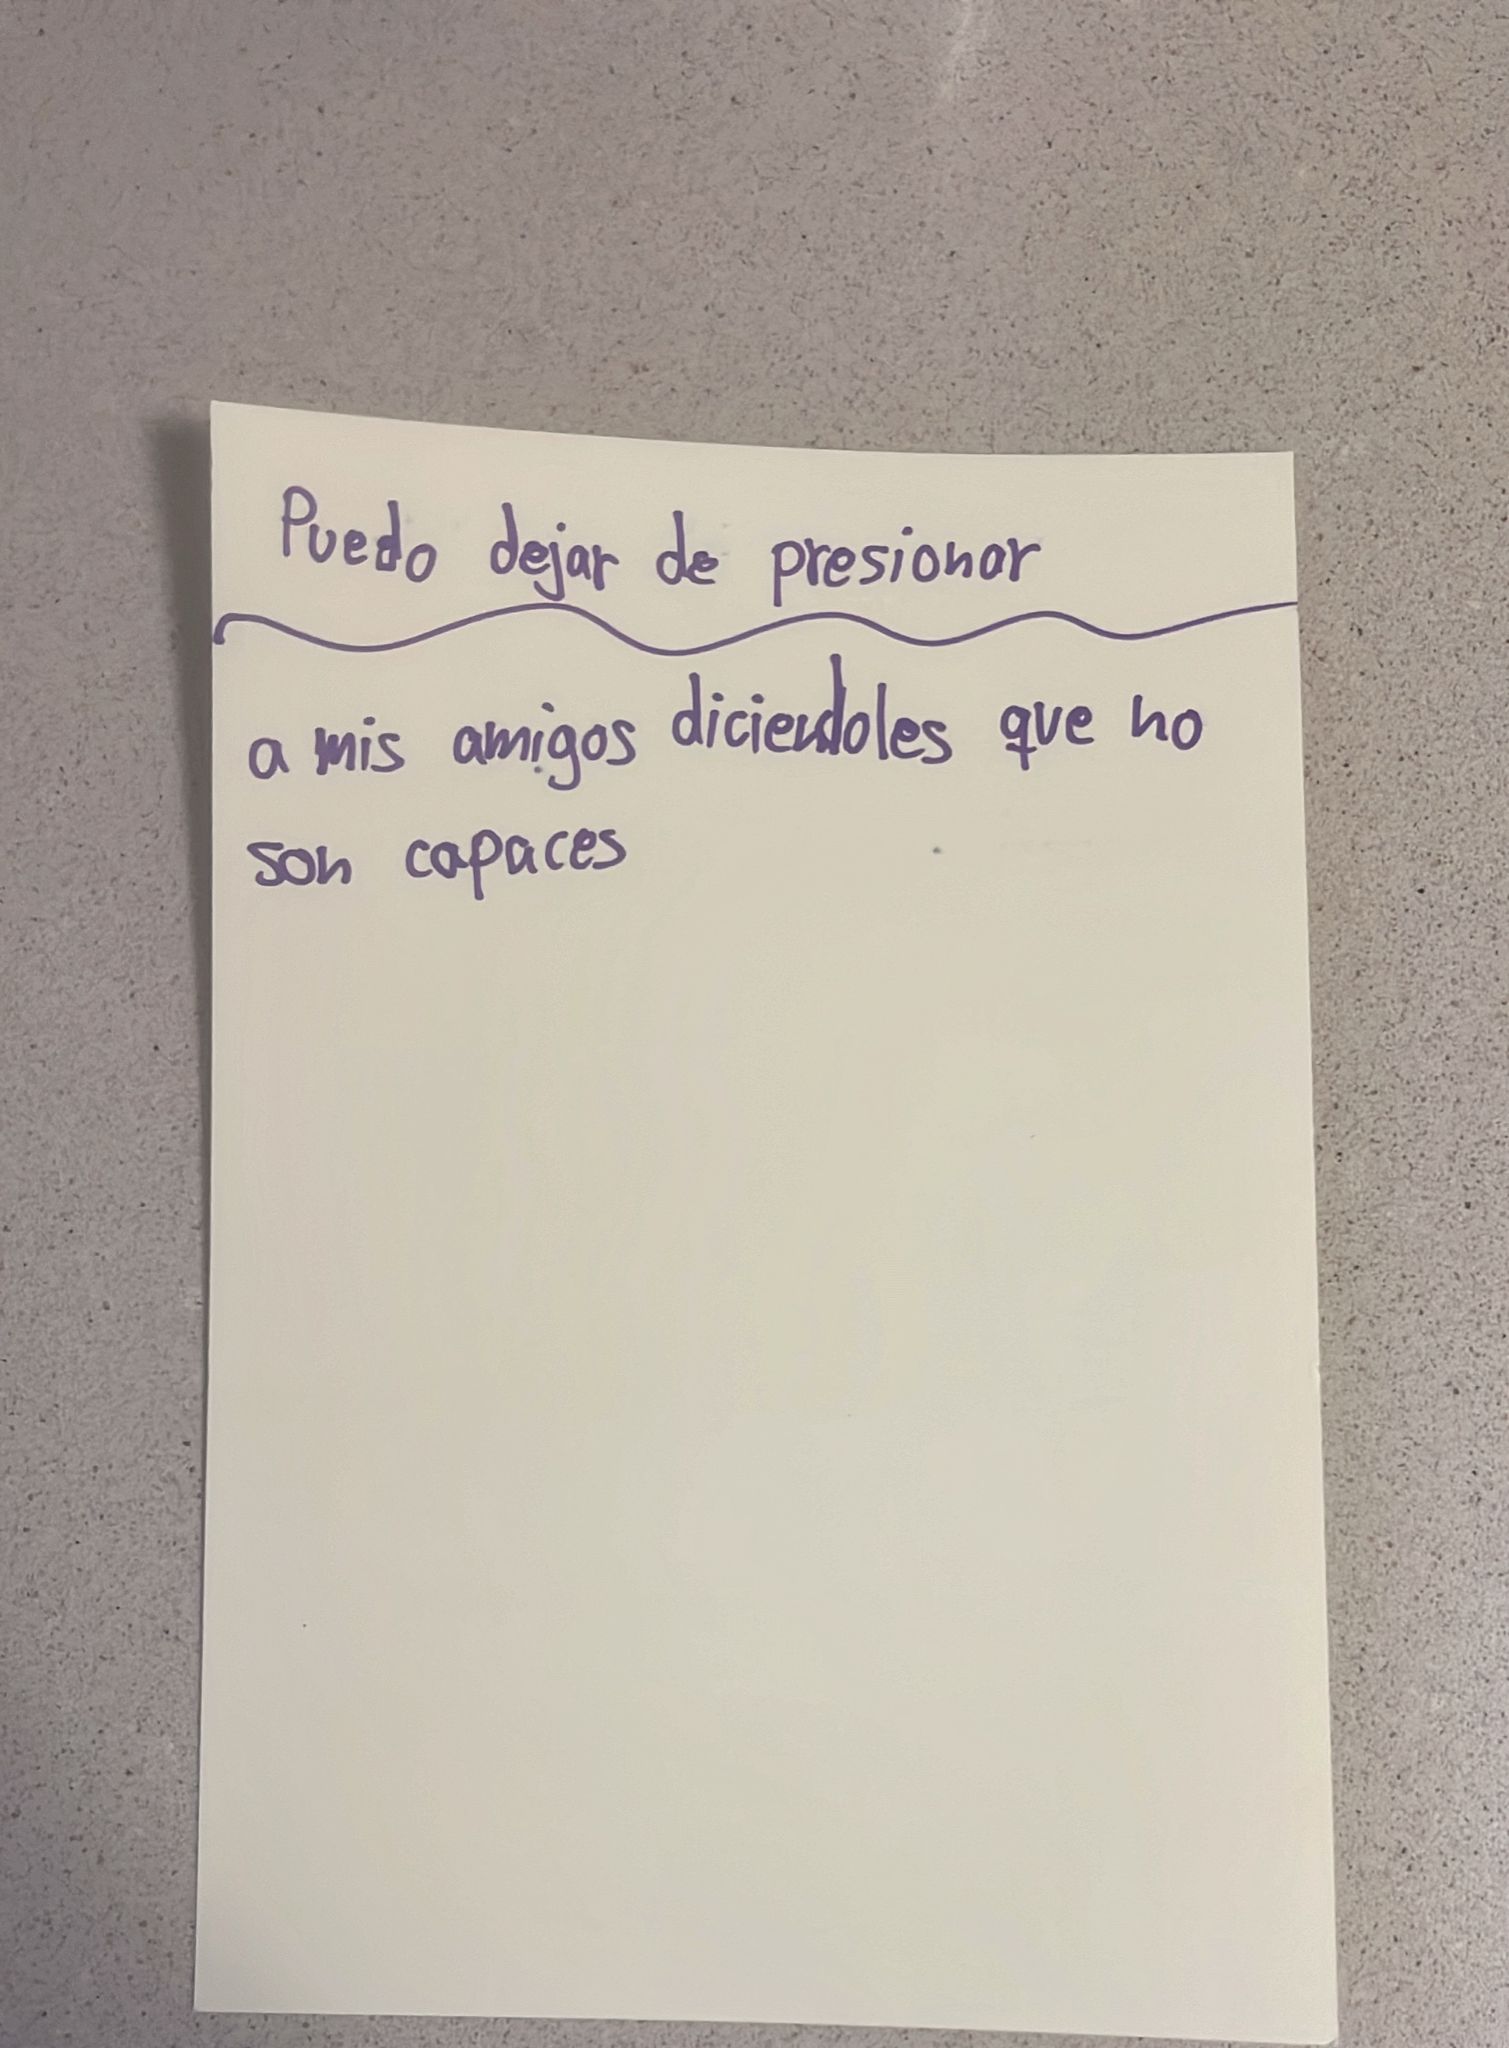 Puedo dejar de presionar
a mis amigos diciendoles que no
son capaces